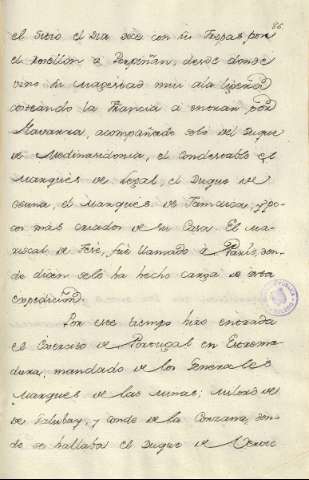 86
el sitio el dia doce con su tropas por
el Rosellón a Perpiñán, desde donde
vino su Magestad mui día ligera
costeando la Francia a entrar por
Navarra, acompañado solo del Duque
de Medinasidonia, el Condestable el
Marqués de Legal, el Duque de
Osuna, el Marqués de Jamaica, y po-
cos más criados de su Casa. El Ma-
riscal de Tesé, fué llamado a París, don-
de dicen se lo ha hecho cargo de esta
expedición.
Por este tiempo hizo entrada
el Exercito de Portugal en Extrema-
dura, mandado de los Generales
Marqués de las Minas; Milord de
de Galubay, y Conde de la Corzana, don-
de se hallaba el Duque de